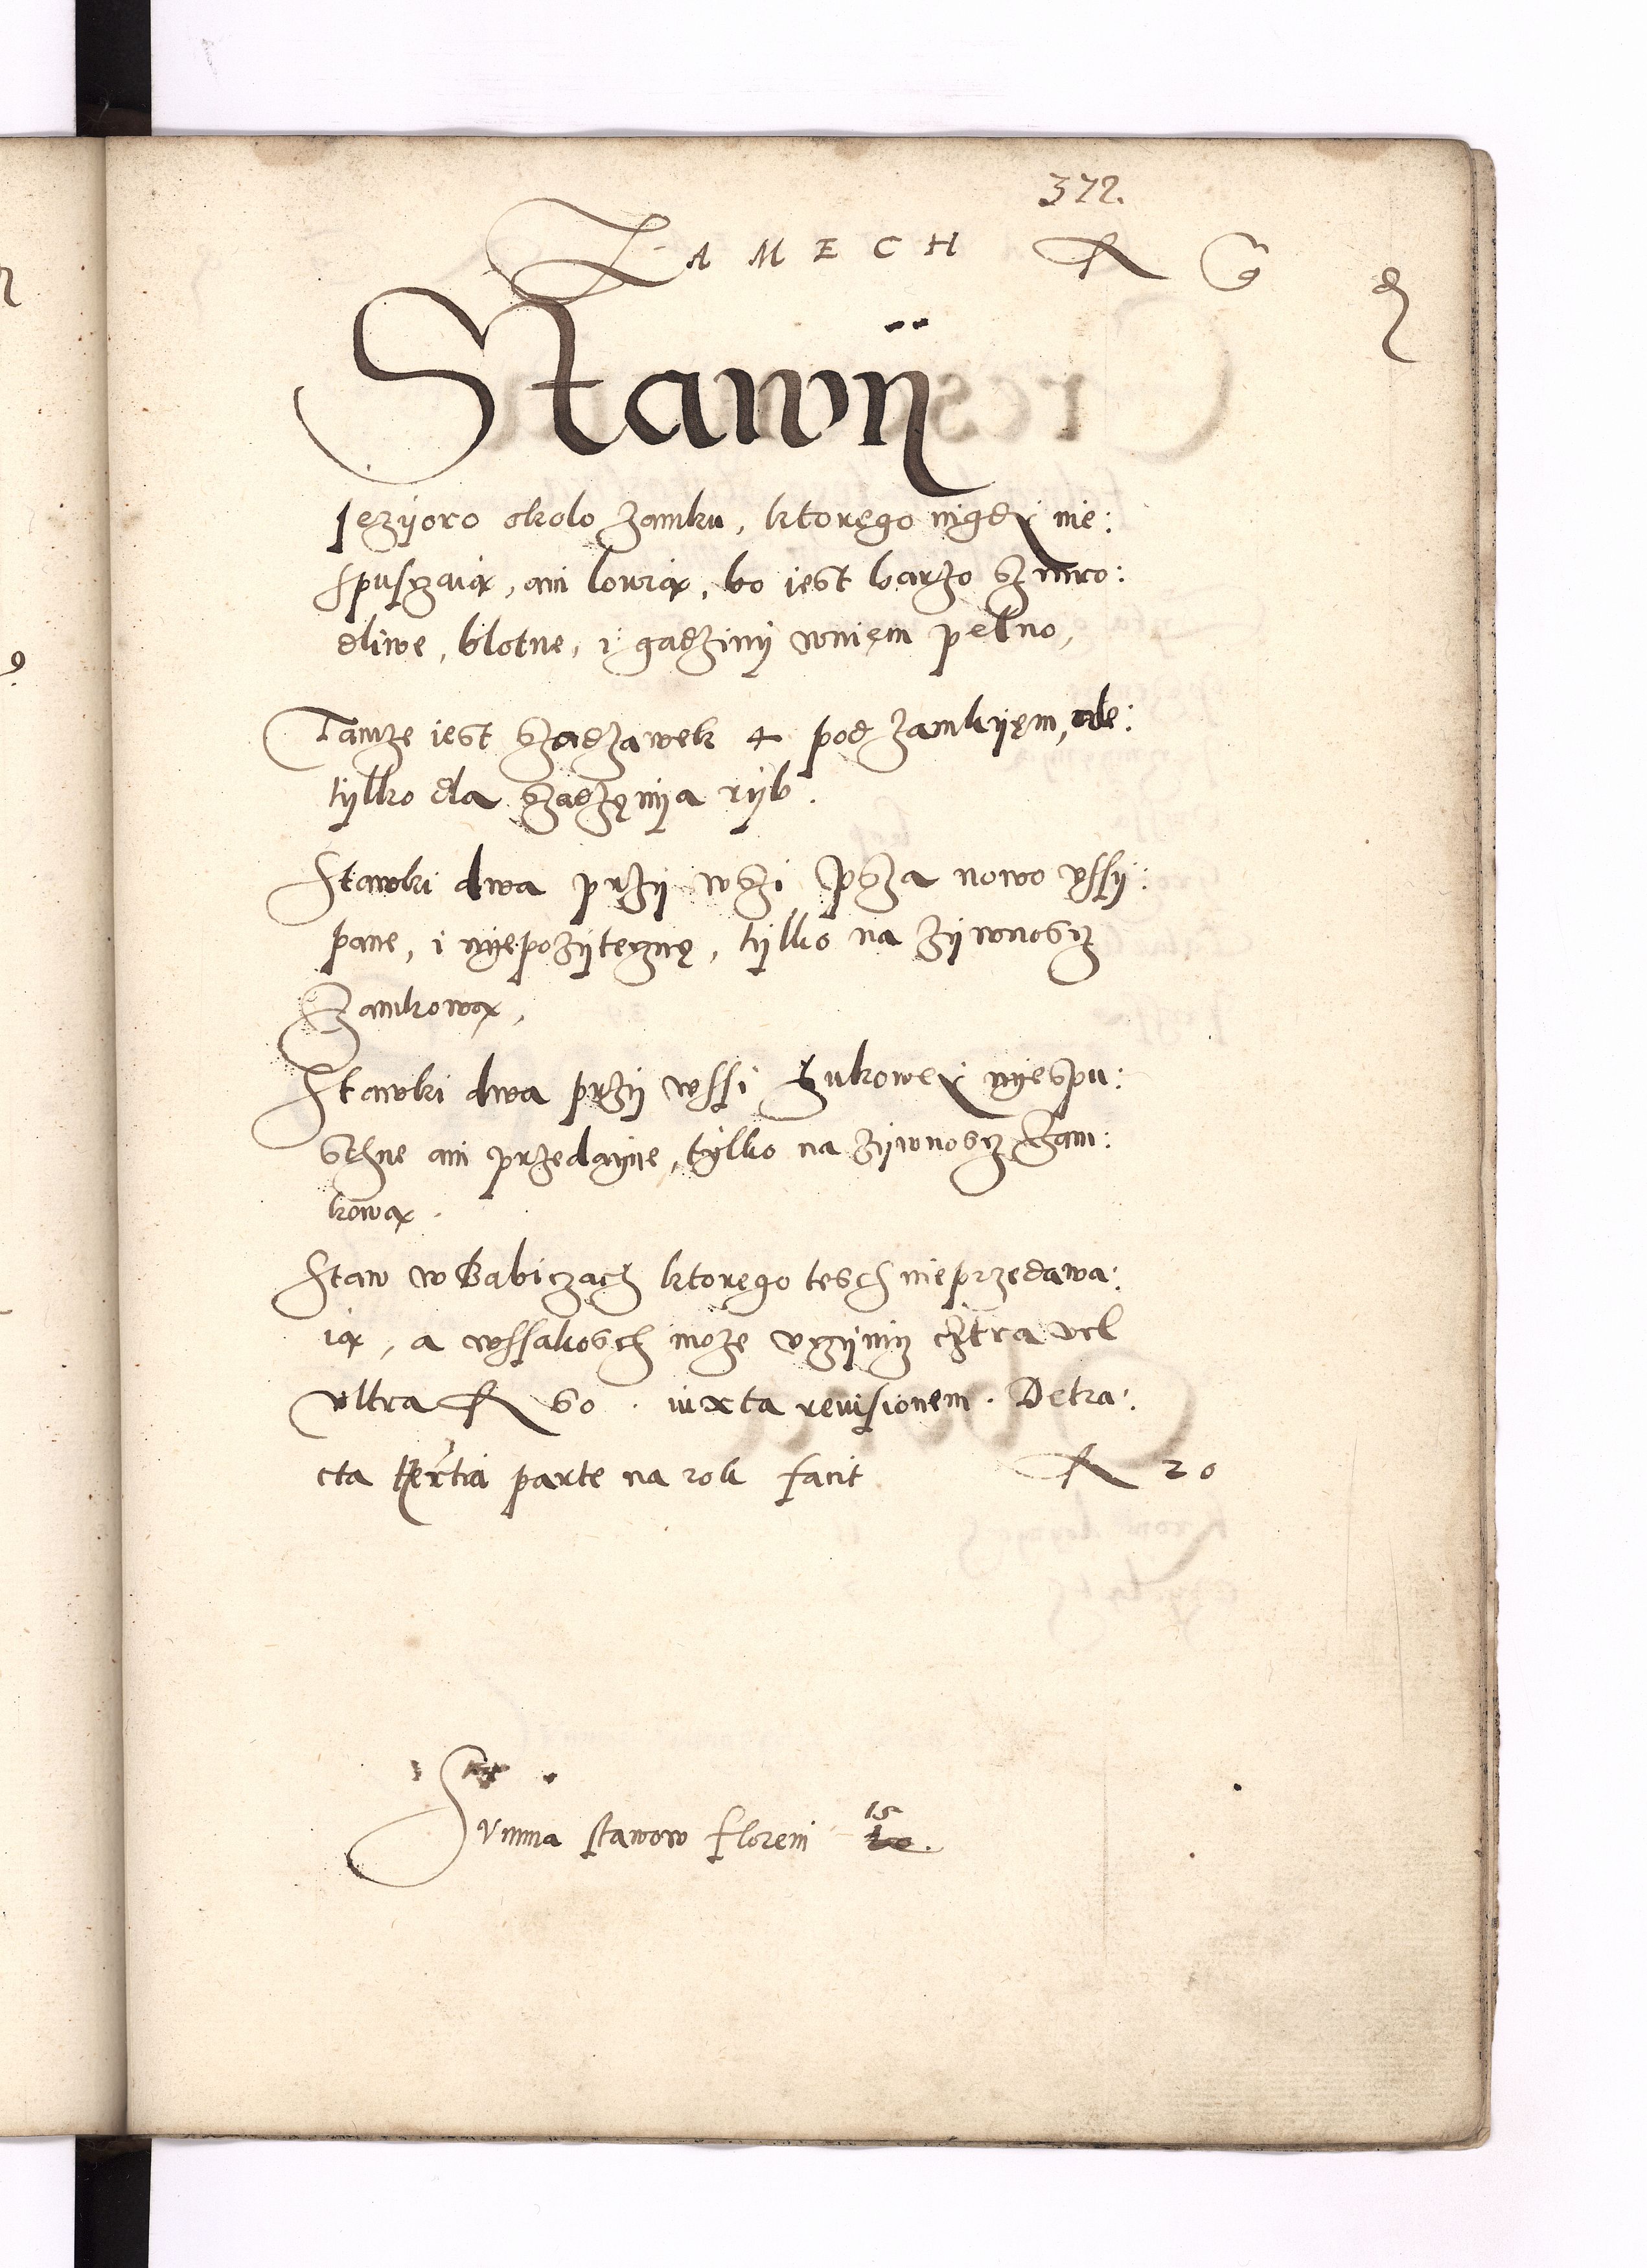 372.
ZAMECH R G d
Stawÿ
Jezÿoro okolo Zamku, ktorego nigdÿ nie:
spusczaią, ani lowią, bo iest barzo szmro:
dliwe, blotne, i gadzinÿ wniem pelno,
Tamze iest szadzawek 4 pod Zamkÿem, ale:
tÿlko dla szadzenÿa rÿb.
Stawki dwa przÿ wszi Psza nowo vssÿ:
pane, i nÿepozÿteczne, tÿlko na zÿwnoscz
Zamkową,
Stawki dwa przÿ wssi Zukoweÿ nÿespu:
sthne ani przedaÿne, tÿlko na zÿwnoscz Zam:
kową.
Staw w Babiczach ktorego tesch nieprzedawa:
ią, a wssakosch moze vczÿnicz citra vel
vltra R 60. iuxta reuisionem. Detra:
cta tertia parte na rok facit R 20
Summa stawow floreni 15